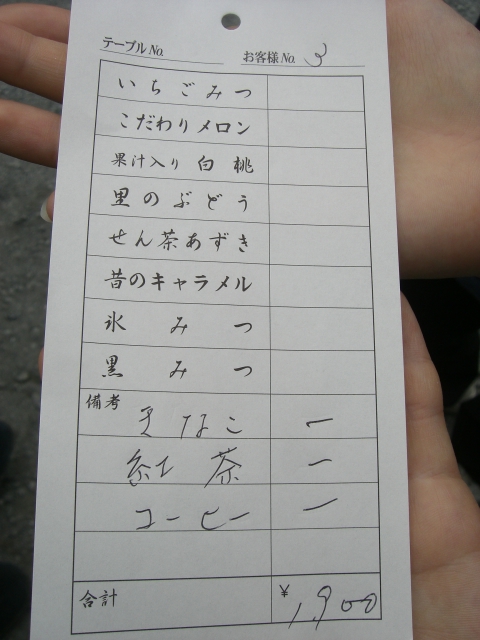 テーブルNo.
お客様No. 3
いちごみつ
こだわりメロン
果汁入り白桃
里のぶどう
せん茶あずき
昔のキャラメル
氷みつ
黒みつ
備考
きなこ 一
紅茶 一
コーヒー 一
合計 ¥1,900